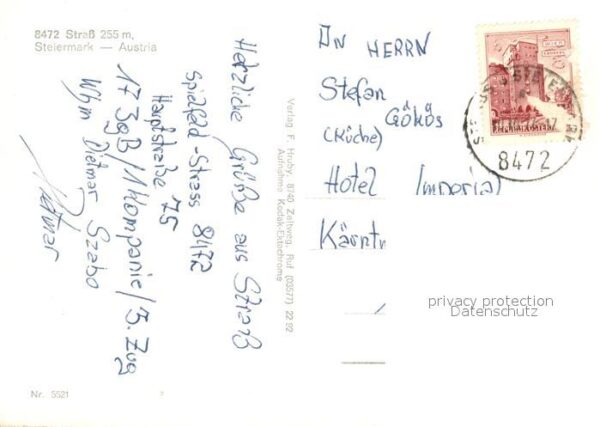 8472 Straß 255 m,
Steiermark — Austria
Herzliche Grüße aus Straß
Spielfeld-Strass 8472
Hauptstraße 75
17 JgB/1 Kompanie/3. Zug
Whm Dietmar Szabo
Dietmar
Verlag F. Hruby, 8740 Zeltweg, Ruf (03577) 22 92
Aufnahme Kodak-Ektachrome
AN HERRN
Stefan
Gökös
(Küche)
Hotel Imperial
Kärntn
8472
privacy protection
Datenschutz
Nr. 5521